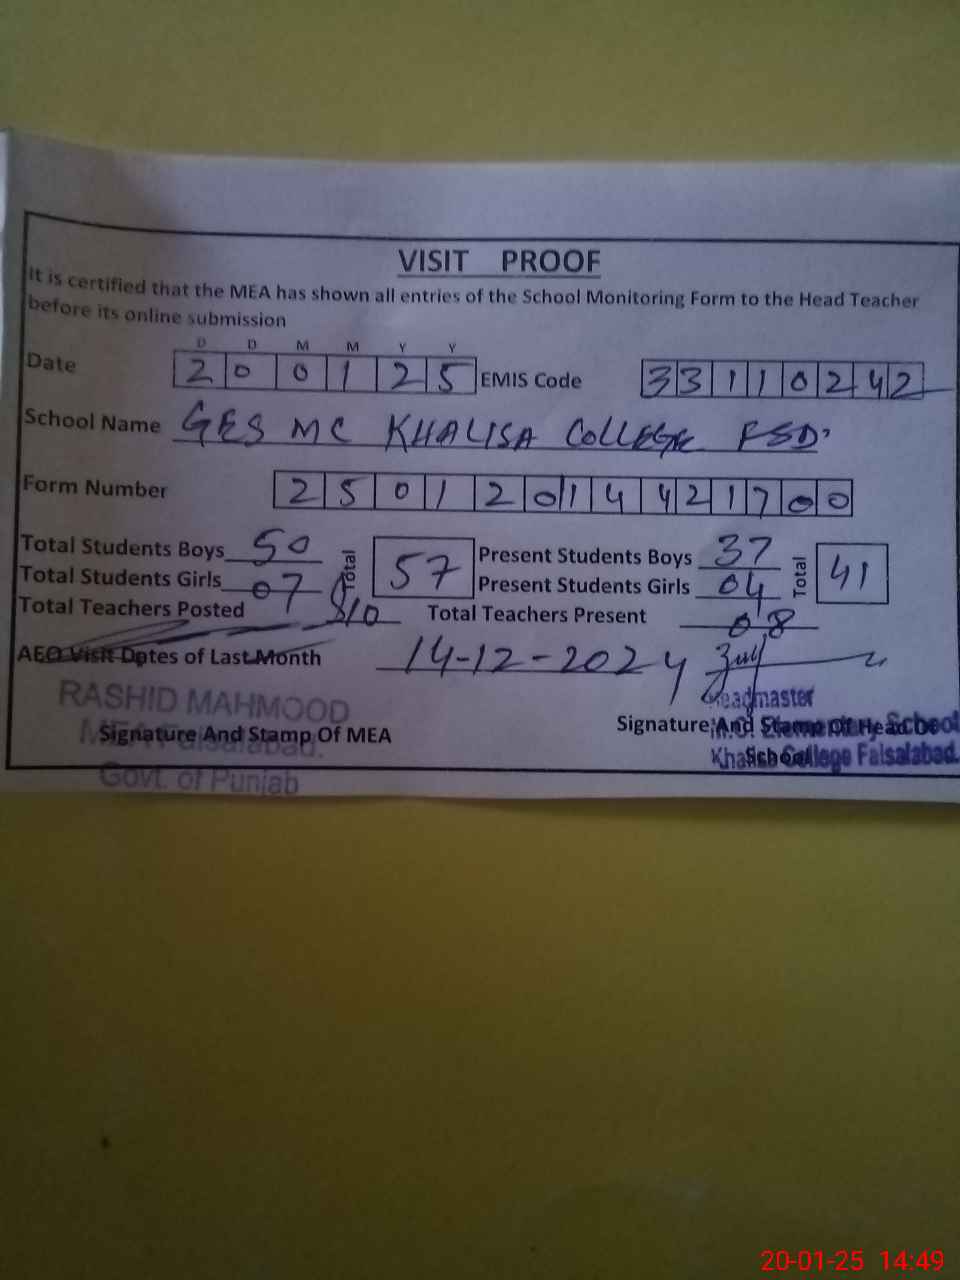 VISIT PROOF
It is certified that the MEA has shown all entries of the School Monitoring Form to the Head Teacher
before its online submission
D D M M Y Y
Date 2 0 0 1 2 5 EMIS Code 3 3 1 1 0 2 4 2
School Name GES MC KHALISA COLLEGE FSD
Form Number 2 5 0 1 2 0 1 4 4 2 1 7 0 0
Total Students Boys 50 Total 57 Present Students Boys 37 Total 41
Total Students Girls 07 Present Students Girls 04
Total Teachers Posted 10 Total Teachers Present 08
AEO Visit Dates of Last Month 14-12-2024
RASHID MAHMOOD
MEA Faisalabad.
Govt. of Punjab
Signature And Stamp Of MEA
Headmaster
M.C. Elementary School
Khalsa College Faisalabad.
Signature And Stamp Of Head
School
20-01-25 14:49